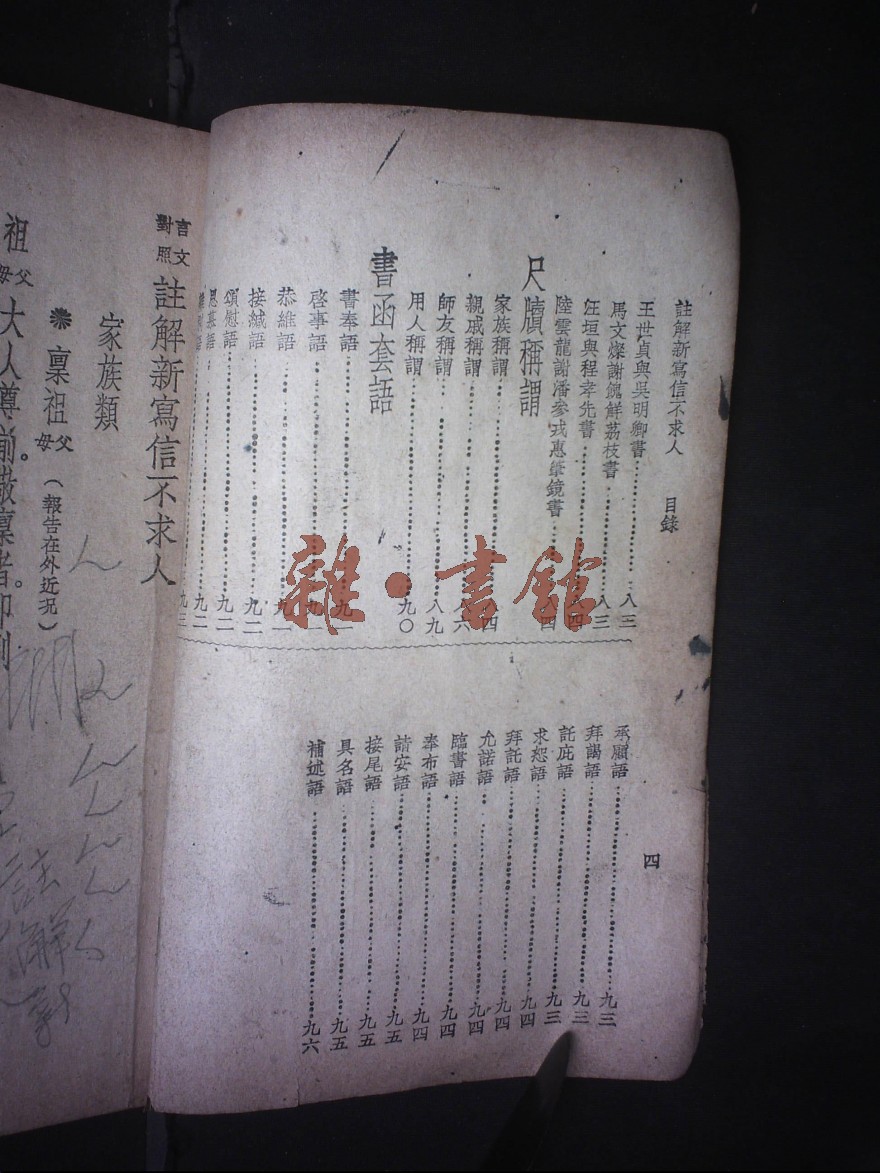 註解新寫信不求人 目錄
王世貞與吳明卿書 八三
馬文燦謝餽鮮荔枝書 八三
汪垣與程孝先書 八四
陸雲龍謝潘參戎惠筆鏡書 八四
尺牘稱謂
家族稱謂 八四
親戚稱謂 八六
師友稱謂 八九
用人稱謂 九〇
書函套語
書奉語 九一
啓事語
恭維語 九一
接緘語 九二
頌慰語 九二
思慕語 九二
九三
四
承願語 九三
拜謁語 九三
託庇語 九三
求恕語 九四
拜託語 九四
允諾語 九四
臨書語 九四
奉布語 九四
請安語 九五
接尾語 九五
具名語 九五
補述語 九六
言文對照 註解新寫信不求人
家族類
稟祖父母(報告在外近況)
祖父母大人尊前。敬稟者。
註解新
雜·書館